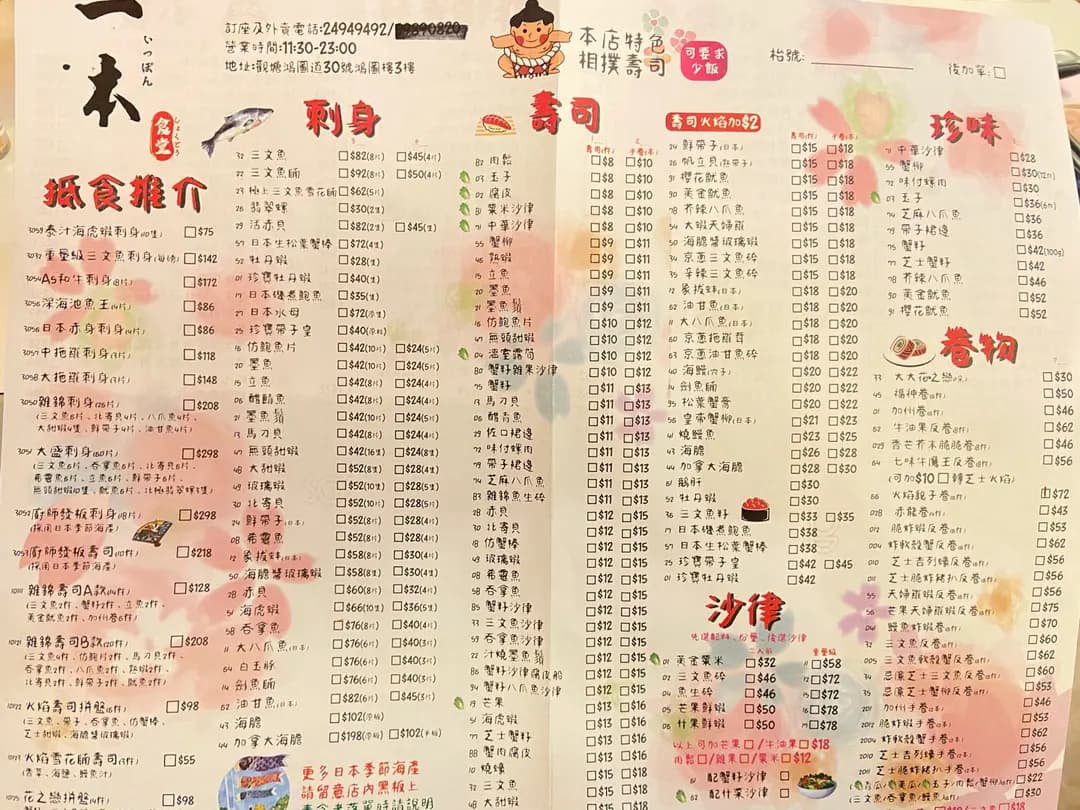 一本
いっぽん
食堂
しょくどう
訂座及外賣電話:24949492/
營業時間:11:30-23:00
地址:觀塘鴻圖道30號鴻圖樓3樓
本店特色
相撲壽司
可要求
少飯
枱號:
後加單:
抵食推介
3059 泰汁海虎蝦刺身(10隻) $75
3032 重量級三文魚刺身 $142
3054 A5和牛刺身(8片) $172
3056 深海池魚王(4片) $86
3056 日本赤身刺身(4片) $86
3057 中拖羅刺身(3片) $118
3058 大拖羅刺身(3片) $148
3050 雜錦刺身(26片) $208
(三文魚6片、北寄貝4片、八爪魚4片、
大甜蝦4隻、鮮帶子4片、油甘魚4片)
3051 大盛刺身(60片) $298
(三文魚6片、吞拿魚6片、北寄貝6片、
希靈魚6片、立魚6片、鮮帶子6片、
無頭甜蝦10隻、魷魚6片、北極翡翠螺3隻)
3052 廚師發板刺身(18片) $298
(採用日本季節海產)
3053 廚師發板壽司(10件) $218
(採用日本季節海產)
1011 雜錦壽司A款(14件) $128
(三文魚2件、蟹籽2件、立魚2件、
黃金魷魚2件、加州卷6件)
1021 雜錦壽司B款(20件) $208
(三文魚4件、仿鮑片2件、馬刀貝2件、
吞拿魚2件、八爪魚2件、熱蝦2件、
北寄貝2件、鮮帶子2件、魷魚2件)
1022 火焰壽司拼盤(6件) $98
(三文魚、帶子、吞拿魚、仿蟹棒、
芝士甜蝦、海膽芝士帶子)
1023 火焰雪花師壽司(3件) $55
(香草、海鹽、鰻魚汁)
花之戀拼盤(4件) $98
刺身
32 三文魚 $82(8片) $45(4片)
22 三文魚腩 $92(8片) $50(4片)
23 極上三文魚雪花腩 $62(5片)
26 翡翠螺 $30(2隻)
29 活赤貝 $82(2隻) $45(1隻)
57 日本生松葉蟹棒 $72(4隻)
52 牡丹蝦 $28(1隻)
01 珍寶牡丹蝦 $40(1隻)
17 日本磯煮鮑魚 $35(1隻)
27 日本水母 $72(原筒)
25 珍寶帶子皇 $40(原粒)
16 仿鮑魚片 $42(10片) $24(5片)
20 墨魚 $42(8片) $24(4片)
15 立魚 $42(8片) $24(4片)
06 醋鯖魚 $42(8片) $24(4片)
21 墨魚鬚 $42(10片) $24(5片)
13 馬刀貝 $42(8片) $24(4片)
47 無頭甜蝦 $42(16隻) $24(8隻)
48 大甜蝦 $52(8隻) $28(4隻)
49 玻璃蝦 $52(10隻) $28(5隻)
30 北寄貝 $52(10片) $28(5片)
24 鮮帶子(日本) $52(8片) $28(4片)
08 希靈魚 $52(8片) $28(4片)
12 象拔蚌(日本) $58(8片) $30(4片)
50 海膽醬玻璃蝦 $58(8隻) $30(4隻)
28 赤貝 $60(8片) $32(4片)
51 海虎蝦 $66(10隻) $36(5隻)
58 吞拿魚 $76(8片) $40(4片)
11 大八爪魚(日本) $76(6片) $40(3片)
64 白玉豚 $76(6片) $40(3片)
14 劍魚腩 $76(6片) $40(3片)
62 油甘魚(日本) $82(6片) $45(3片)
43 海膽 $102(原板)
44 加拿大海膽 $198(原板) $102(半板)
更多日本季節海產
請留意店內黑板上
壽司
壽司(件) 手卷(本)
82 肉鬆 $8 $10
03 玉子 $8 $10
02 腐皮 $8 $10
81 粟米沙律 $8 $10
71 中華沙律 $8 $10
55 蟹柳 $9 $11
46 熱蝦 $9 $11
15 立魚 $9 $11
20 墨魚 $9 $11
21 墨魚鬚 $9 $11
16 仿鮑魚片 $10 $12
47 無頭甜蝦 $10 $12
04 溫室露筍 $10 $12
80 蟹籽雜果沙律 $10 $12
75 蟹籽 $11 $13
13 馬刀貝 $11 $13
06 醋青魚 $11 $13
29 佐口裙邊 $11 $13
72 味付螺肉 $11 $13
79 帶子裙邊 $11 $13
74 芝麻八爪魚 $11 $13
83 雜錦魚生碎 $12 $15
28 赤貝 $12 $15
30 北寄貝 $12 $15
18 仿蟹棒 $12 $15
49 玻璃蝦 $12 $15
08 希靈魚 $12 $15
58 吞拿魚 $12 $15
85 蟹籽沙律 $12 $15
33 三文魚沙律 $12 $15
59 吞拿魚沙律 $12 $15
22 汁燒墨魚鬚 $12 $15
86 蟹籽沙律腐皮船 $12 $15
94 蟹籽八爪魚沙律 $12 $15
19 芒果 $13 $16
51 海虎蝦 $13 $16
77 芝士蟹籽 $13 $16
88 蟹肉腐皮 $13 $16
10 燒蠔 $13 $16
32 三文魚 $13 $16
48 大甜蝦 $13 $16
壽司火焰加$2
壽司(件) 手卷(本)
24 鮮帶子(日本) $15 $18
26 帆立貝(熟帶子) $15 $18
91 櫻花魷魚 $15 $18
90 黃金魷魚 $15 $18
78 芥辣八爪魚 $15 $18
54 大蝦天婦羅 $15 $18
50 海膽醬玻璃蝦 $15 $18
34 京蔥三文魚碎 $15 $18
35 辛辣三文魚碎 $15 $18
12 象拔蚌(日本) $18 $20
62 油甘魚(日本) $18 $20
11 大八爪魚(日本) $18 $20
60 京蔥拖羅茸 $18 $20
63 京蔥油甘魚碎 $18 $20
40 海鰻(穴子) $20 $22
14 劍魚腩 $20 $22
95 松葉蟹膏 $20 $22
56 皇帝蟹柳(日本) $21 $23
41 燒鰻魚 $23 $25
43 海膽 $26 $28
44 加拿大海膽 $28 $30
81 鵝肝 $30
52 牡丹蝦 $30
36 三文魚籽 $33 $35
17 日本磯煮鮑魚 $38
57 日本生松葉蟹棒 $38
25 珍寶帶子皇 $42 $45
01 珍寶牡丹蝦 $42
沙律
先選配料、份量、後選沙律
二人前 重量級
01 黃金粟米 $32 11 $58
02 三文魚碎 $46 12 $72
04 魚生碎 $46 14 $72
05 芒果鮮蝦 $50 15 $78
06 什果鮮蝦 $50 16 $78
以上可加芒果/牛油果$18
肉鬆/雜果/粟米$12
61 配蟹籽沙律
62 配什菜沙律
珍味
71 中華沙律 $28
55 蟹柳 $30(12件)
72 味付螺肉 $30
03 玉子 $36(6件)
74 芝麻八爪魚 $36
79 帶子裙邊 $36
75 蟹籽 $42(100g)
77 芝士蟹籽 $42
78 芥辣八爪魚 $46
90 黃金魷魚 $52
91 櫻花魷魚 $52
卷物
33 大大花之戀 $30
45 楊神卷(8件) $50
01 加州卷(8件) $46
62 牛油果反卷(8件) $62
029 香芒芥末脆脆卷(8件) $46
64 七味牛魔王反卷(8件) $56
(可加$10 轉芝士火焰)
66 火焰親子卷(8件) $72
028 赤龍卷(8件) $43
012 脆炸蝦反卷(8件) $53
004 炸軟殼蟹反卷(8件) $62
010 芝士吉列蠔反卷(8件) $56
011 芝士脆炸豬扒反卷(8件) $56
55 天婦羅蝦反卷(8件) $56
56 芒果天婦羅蝦反卷(8件) $75
04 鰻魚炸蝦卷(8件) $70
32 三文魚反卷(8件) $60
005 三文魚軟殼蟹反卷(8件) $62
34 惡魔芝士三文魚反卷(8件) $60
36 惡魔芝士蟹柳反卷(8件) $53
201 加州手卷(2本) $46
2012 脆炸蝦手卷(2本) $53
2004 炸軟殼蟹手卷(2本) $62
2010 芝士吉列蠔手卷(2本) $56
2011 芝士脆炸豬扒手卷(2本) $56
(青瓜/黃瓜/玉子/肉鬆/蟹柳)(8件) $22
(三文魚/吞拿魚/鰻魚)(8件) $30